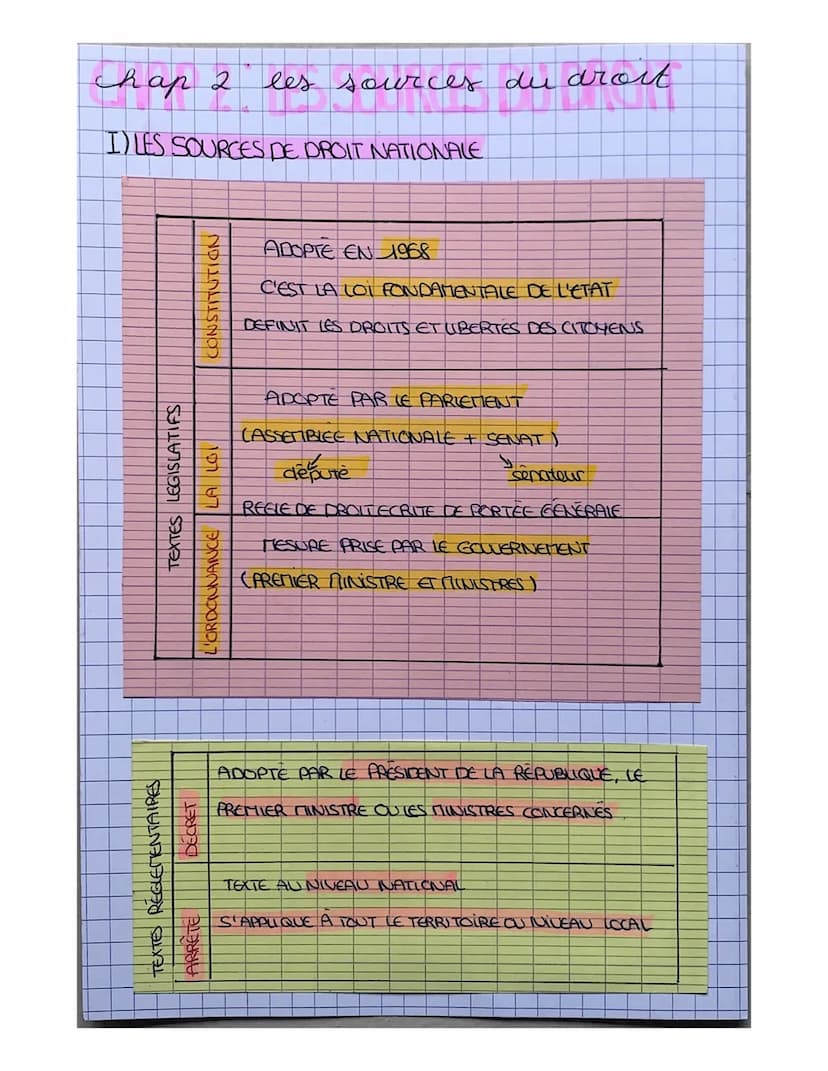 Chap 2 : les sources du droit
I) LES SOURCES DE DROIT NATIONALE
TEXTES LEGISLATIFS
CONSTITUTION
ADOPTÉ EN 1958
C'EST LA LOI FONDAMENTALE DE L'ETAT
DEFINIT LES DROITS ET LIBERTES DES CITOYENS
LA LOI
ADOPTÉ PAR LE PARLEMENT
(ASSEMBLEE NATIONALE + SENAT)
député sénateur
REGLE DE DROIT ECRITE DE PORTÉE GÉNÉRALE
L'ORDONNANCE
MESURE PRISE PAR LE GOUVERNEMENT
(PREMIER MINISTRE ET MINISTRES)
TEXTES RÉGLEMENTAIRES
DÉCRET
ADOPTÉ PAR LE PRÉSIDENT DE LA RÉPUBLIQUE, LE
PREMIER MINISTRE OU LES MINISTRES CONCERNÉS
ARRÊTÉ
TEXTE AU NIVEAU NATIONAL
S'APPLIQUE À TOUT LE TERRITOIRE OU NIVEAU LOCAL